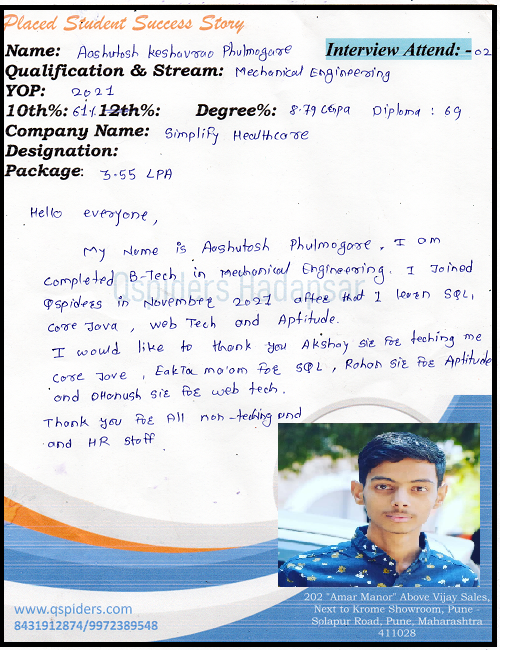 Placed Student Success Story
Name: Aashutosh Keshavrao Phulmogare Interview Attend: - 02
Qualification & Stream: Mechanical Engineering
YOP: 2021
10th%: 61% 12th%: Degree%: 8.79 CGpa Diploma : 69
Company Name: Simplify Healthcare
Designation:
Package: 3.55 LPA
Hello everyone,
My Name is Aashutosh Phulmogare. I am
completed B-Tech in Mechanical Engineering. I Joined
Qspiders Hadapsar
Qspiders in November 2021 after that I learn SQL,
core Java, web Tech and Aptitude.
I would like to thank you Akshay sir for teching me
core Jave, Eakta ma'am for SQL, Rohan sir for Aptitude
and Dhanush sir for web tech.
Thank you for All non-teching and
and HR staff
www.qspiders.com
8431912874/9972389548
202 "Amar Manor" Above Vijay Sales,
Next to Krome Showroom, Pune -
Solapur Road, Pune, Maharashtra
411028